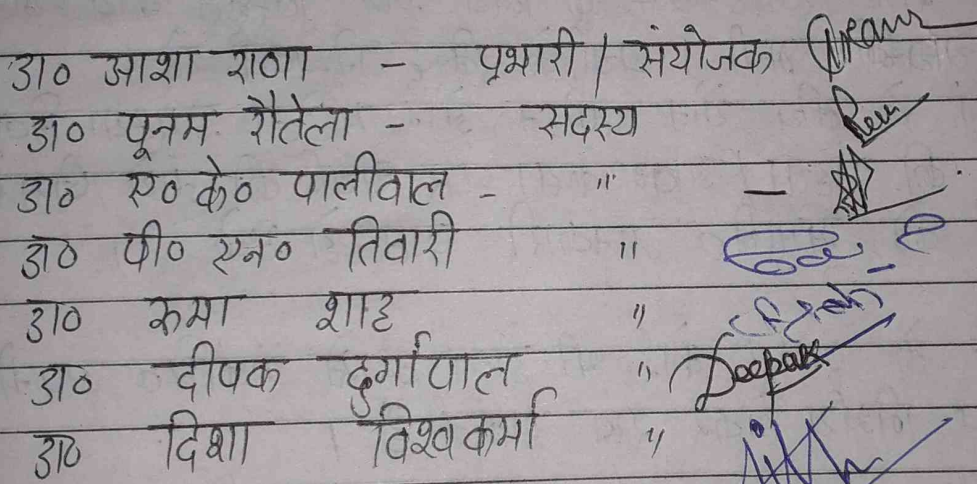 डा० आशा राणा - प्रभारी / संयोजक
डा० पूनम रौतेला - सदस्य
डा० ए० के० पालीवाल - " -
डा० पी० एन० तिवारी "
डा० रुमा शाह "
डा० दीपक दुर्गापाल " Deepak
डा० दिशा विश्वकर्मा "